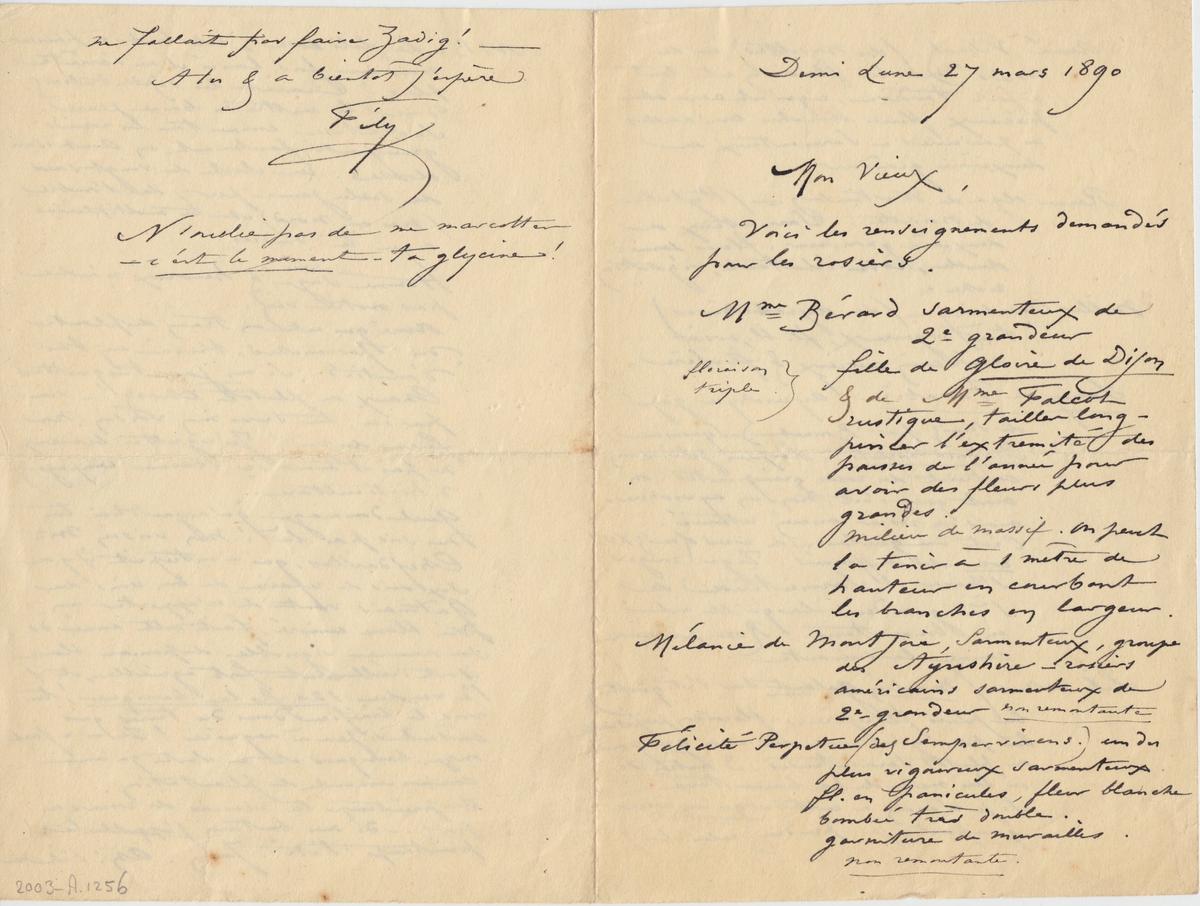 ne fallait pas faire Zadig! —
A toi & a bientôt j'espère
Fély
N'oublie pas de me marcotter
— c'est le moment — ta glycine!
2003-A.1256
Demi Lune 27 mars 1890
Mon Vieux,
Voici les renseignements demandés
pour les rosiers.
Mme Bérard sarmenteux de
2e grandeur
floraison
triple
fille de Gloire de Dijon
& de Mme Falcot
rustique, tailler long -
pincer l'extremité des
pousses de l'année pour
avoir des fleurs plus
grandes.
milieu de massif. on peut
la tenir à 1 mètre de
hauteur en courbant
les branches en largeur.
Mélanie de Montjoie, Sarmenteux, groupe
des Ayrshire - rosiers
américains sarmenteux de
2e grandeur non remontante
Félicité Perpetue (des Sempervirens.) un des
plus vigoureux sarmenteux
fl. en panicules, fleur blanche
bombée très double.
garniture de murailles.
non remontante.